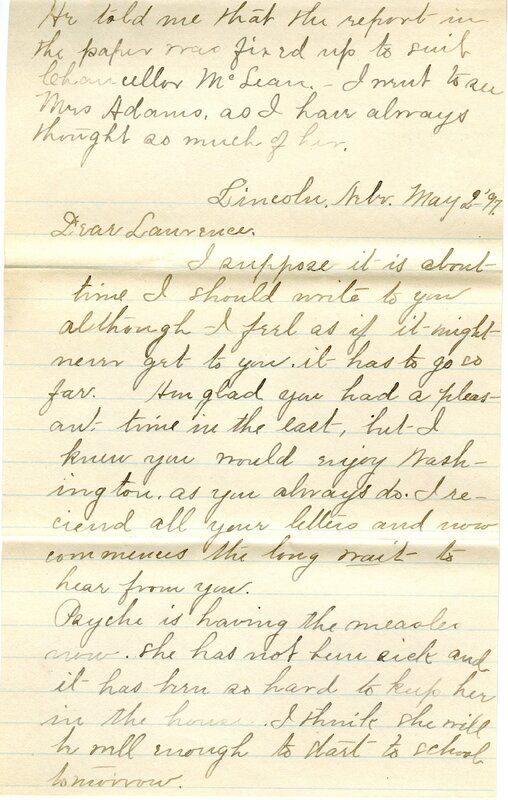 He told me that the report in
the paper was fixed up to suit
Chancellor McLean. - I went to see
Mrs Adams, as I have always
thought so much of her.
Lincoln, Nebr. May 2 - '97.
Dear Laurence.
I suppose it is about
time I should write to you
although I feel as if it might
never get to you. it has to go so
far. Am glad you had a pleas-
ant time in the east, but I
knew you would enjoy Wash-
ington, as you always do. I re-
ciend all your letters and now
commences the long wait to
hear from you.
Psyche is having the measles
now. she has not been sick and
it has been so hard to keep her
in the house. I think she will
be well enough to start to school
tomorrow.